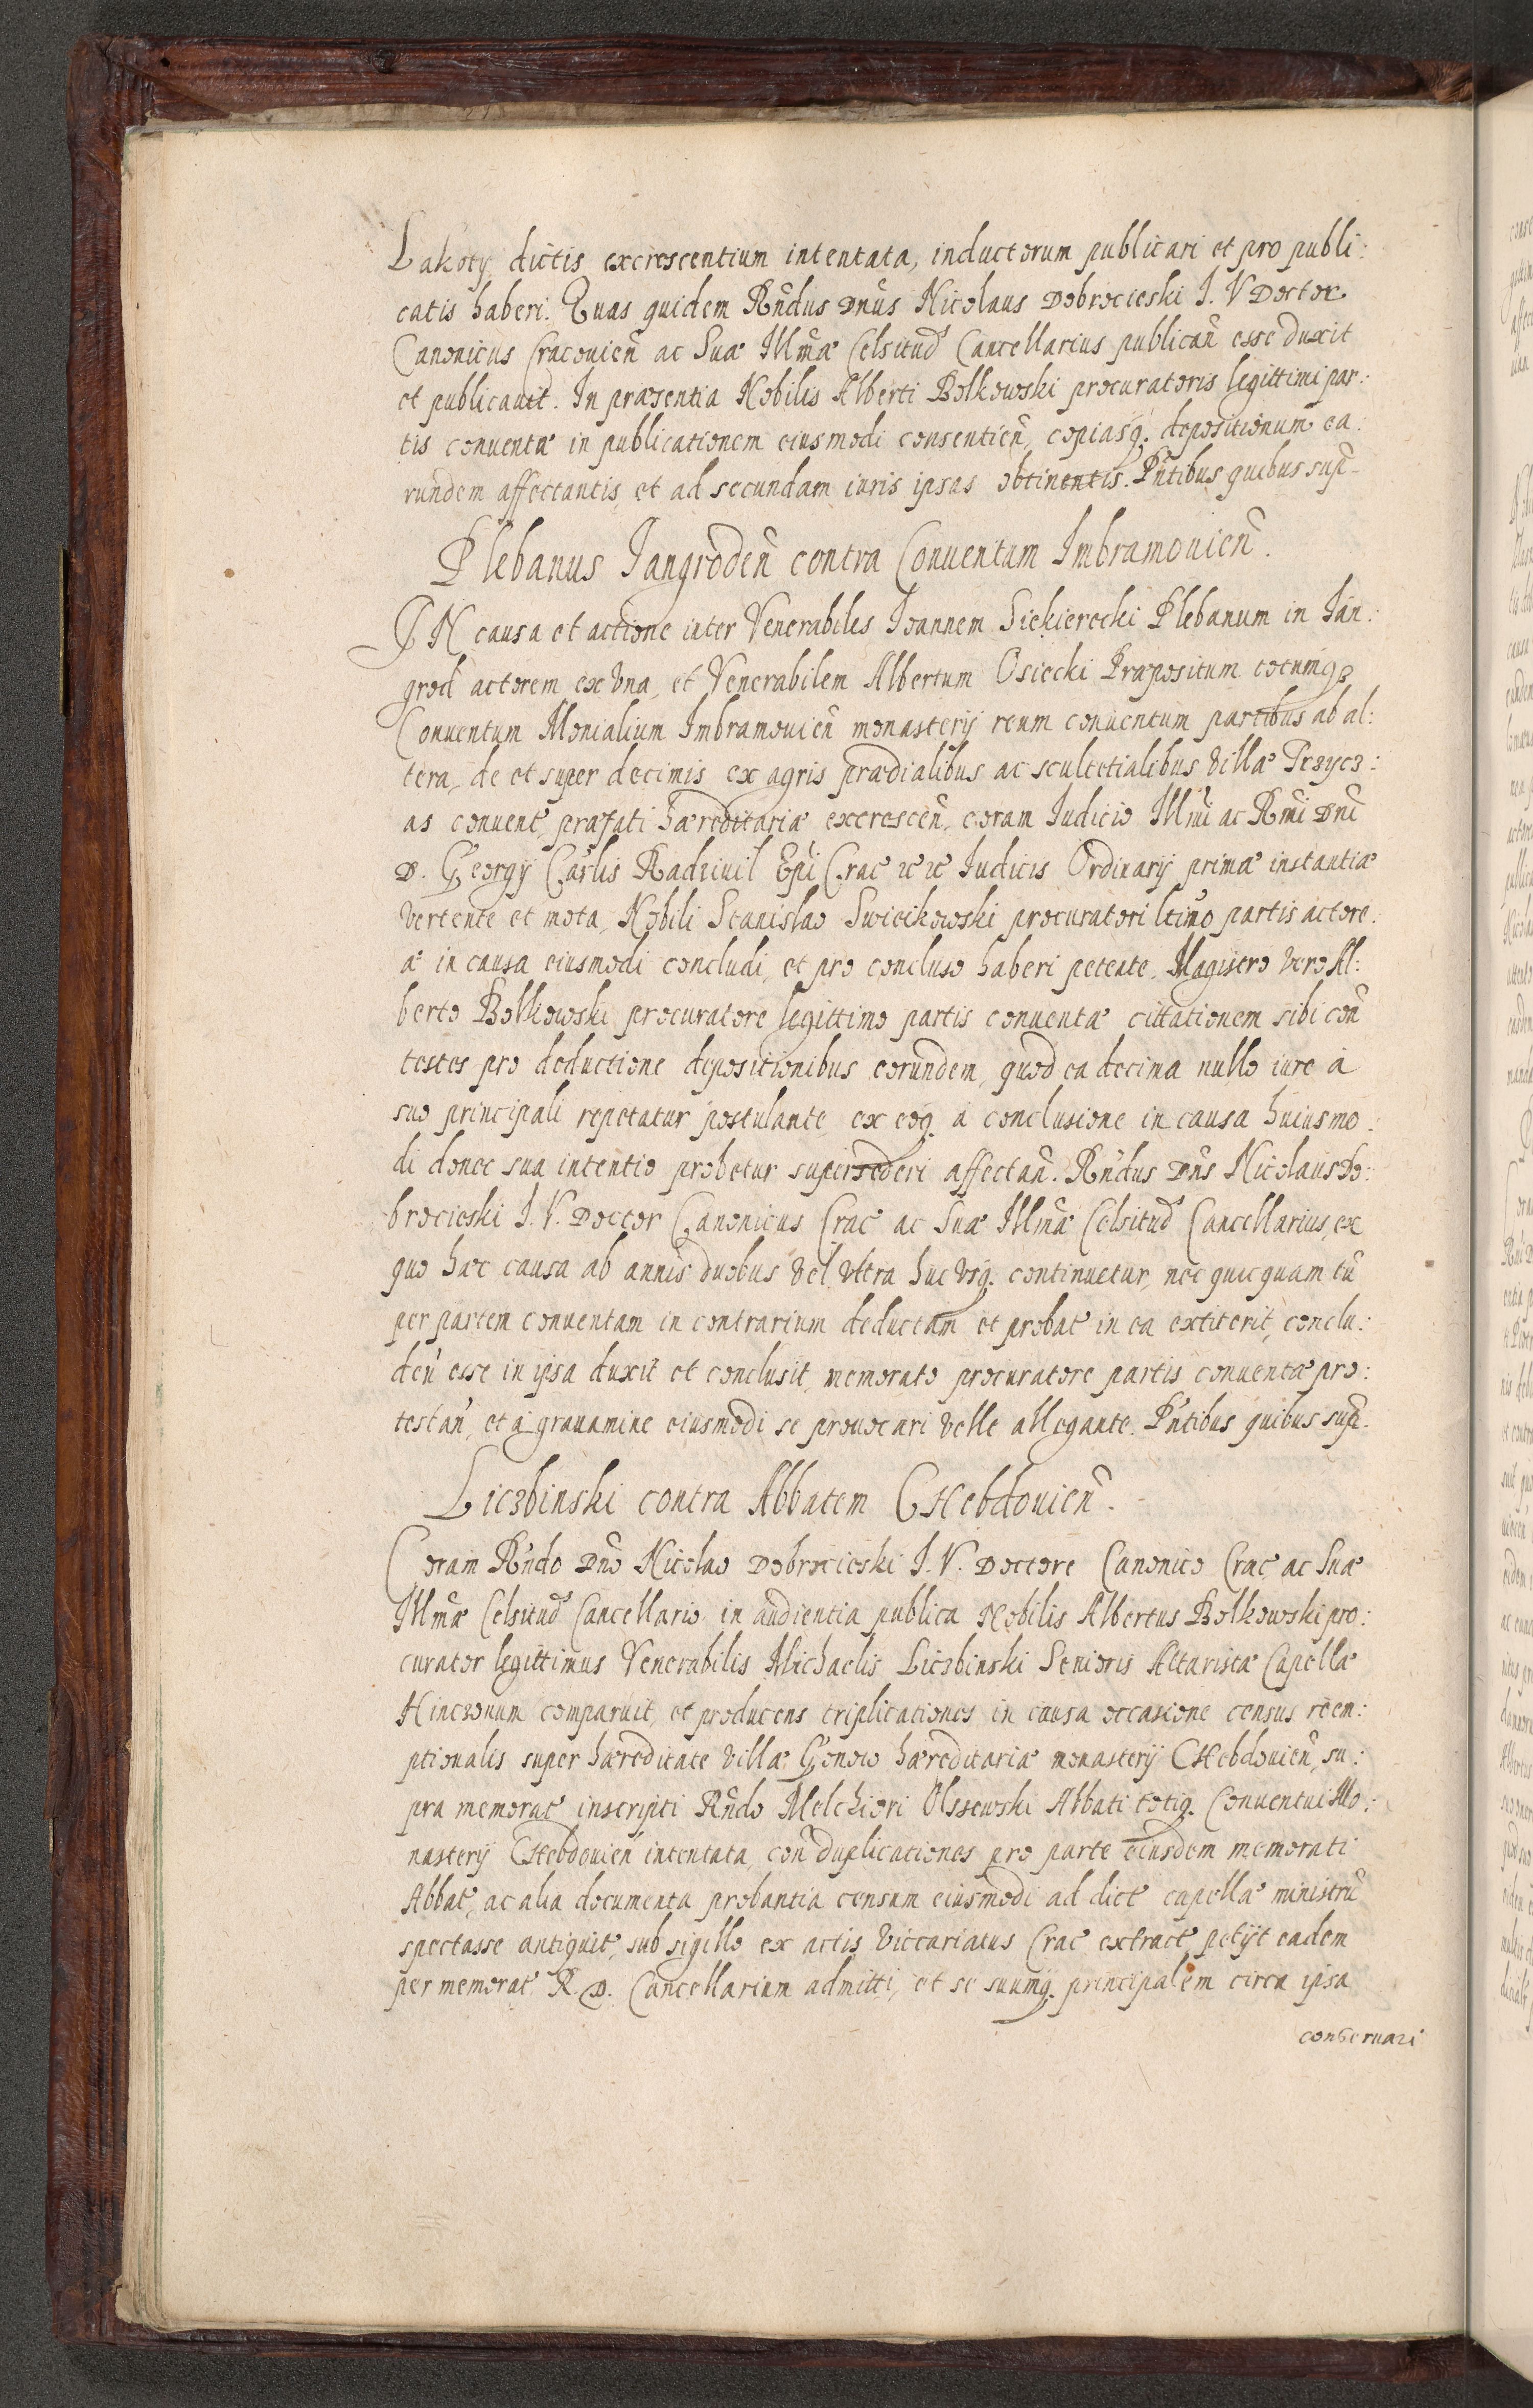 Lakoty dictis excrescentium intentata, inductorum publicari et pro publi:
catis haberi. Quas quidem Rñdus Dnus Nicolaus Dobrocieski I. V Doctor
Canonicus Cracouieñ ac Suæ Illmæ Celsitud Cancellarius publicañ esse duxit
et publicauit. In præsentia Nobilis Alberti Bolkowski procuratoris legittimi par:
tis conuentæ in publicationem eiusmodi consentieñ, copiasq. depositionum ea.
rundem affectantis, et ad secundam iuris ipsas obtinentis. Pñtibus quibus sup̃
Plebanus Jangrodeñ contra Conuentum Imbramouieñ.
IN causa et actione inter Venerabiles Ioannem Siekierecki Plebanum in Ian:
grod actorem ex vna, et Venerabilem Albertum Osiecki Præpositum totumqꝫ
Conuentum Monialium Imbramouieñ monasterij reum conuentum partibus ab al:
tera, de et super decimis ex agris prædialibus ac scultetialibus villæ Trzycz:
as conuent præfati hæreditariæ excrescen̄, coram Iudicio Illmi ac Rmi Dni
D. Georgij Carlis Radziuil Epi Crac &c &c Iudicis Ordinarij primæ instantiæ
vertente et mota, Nobili Stanislao Swieikowski procuratori ltimo partis actore.
æ in causa eiusmodi concludi, et pro concluso haberi petente, Magistro vero Al:
berto Bolkowski procuratore legittimo partis conuentæ cittationem sibi coñ
testes pro deductione depositionibus eorundem, quod ea decima nullo iure à
suo principali repetatur postulante, ex eoq. à conclusione in causa huiusmo.
di donec sua intentio probetur supersederi affectañ. Rñdus Dñs Nicolaus Do:
brocieski I. V. Doctor Canonicus Crac ac Suæ Illmæ Celsitud Cancellarius, ex
quo hæc causa ab annis duobus vel vltra huc vsq. continuetur, nec quicquam tũ
per partem conuentam in contrarium deductam et probat in ea extiterit, conclu:
deñ esse in ipsa duxit et conclusit, memorato procuratore partis conuentæ pro:
testañ, et à grauamine eiusmodi se prouocari velle allegante. Pñtibus quibus sup̃.
Liczbinski contra Abbatem CHebdouieñ.
Coram Rñdo Dño Nicolao Dobrocieski I. V. Doctore Canonico Crac ac Suæ
Illmæ Celsitud Cancellario in audientia publica Nobilis Albertus Bolkowski pro:
curator legittimus Venerabilis Michaelis Liczbinski Senioris Altaristæ Capellæ
Hinczonum comparuit, et producens triplicationes in causa occasione census reem:
ptionalis super hæreditate villæ Gonow hæreditariæ monasterij CHebdouieñ, su:
pra memorat inscripti Rñdo Melchiori Olssewski Abbati totiq. Conuentui Mo:
nasterij CHebdouieñ intentata, coñ duplicationes pro parte eiusdem memorati
Abbat, ac alia documenta probantia censum eiusmodi ad dict capellæ ministrũ
spectasse antiquit, sub sigillo ex actis viccariatus Crac extract petijt eadem
per memorat R. D. Cancellarium admitti, et se suumq. principalem circa ipsa
conseruari